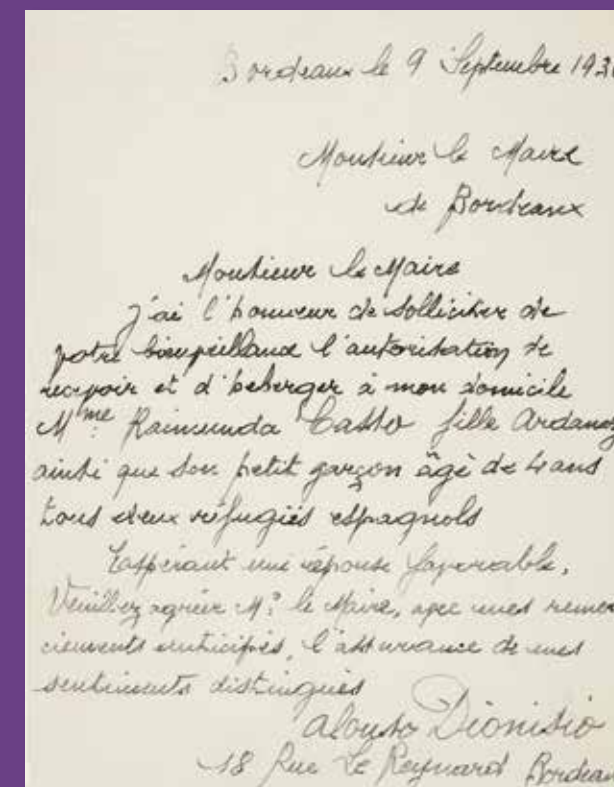 Bordeaux le 9 Septembre 193
Monsieur le Maire
de Bordeaux
Monsieur le Maire
J'ai l'honneur de solliciter de
votre bienveillance l'autorisation de
recevoir et d'heberger à mon domicile
Mme Raimunda Casso fille Ardanoz
ainsi que son petit garçon âgé de 4 ans
tous deux réfugiés espagnols
Espérant une réponse favorable,
Veuillez agréer Mr le Maire, avec mes remer
ciements anticipés, l'assurance de mes
sentiments distingués
Alonso Dionisio
18 Rue Le Reynard Bordeaux